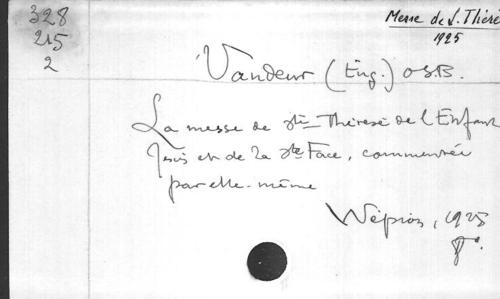 328
215
2
Messe de S. Thérè
1925
Vandeur (Eug.) OSB.
La messe de ste Thérèse de l'Enfant
Jésus et de la ste Face, commentée
par elle-même
Wépion, 1925